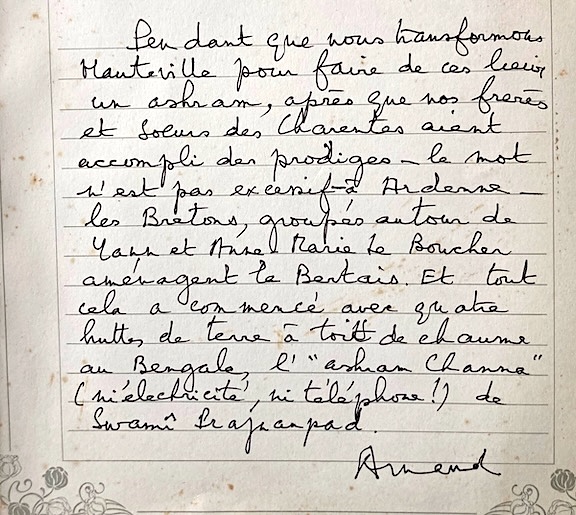 Pendant que nous transformons
Hauteville pour faire de ces lieux
un ashram, après que nos frères
et soeurs des Charentes aient
accompli des prodiges – le mot
n'est pas excessif – à Ardenne –
les Bretons, groupés autour de
Yann et Anne Marie Le Boucher
aménagent le Bertais. Et tout
cela a commencé avec quatre
huttes de terre à toit de chaume
au Bengale, l'"ashram Channa"
(ni électricité, ni téléphone!) de
Swamî Prajnanpad.
Arnaud